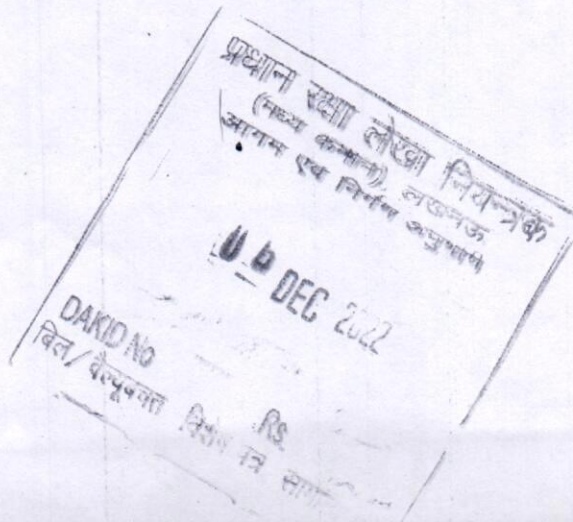 प्रधान रक्षा लेखा नियन्त्रक
(मध्य कमान), लखनऊ
आगम एवं निर्गम अनुभाग
DEC 2022
DAKID No
Rs.
बिल/वैल्यूबल